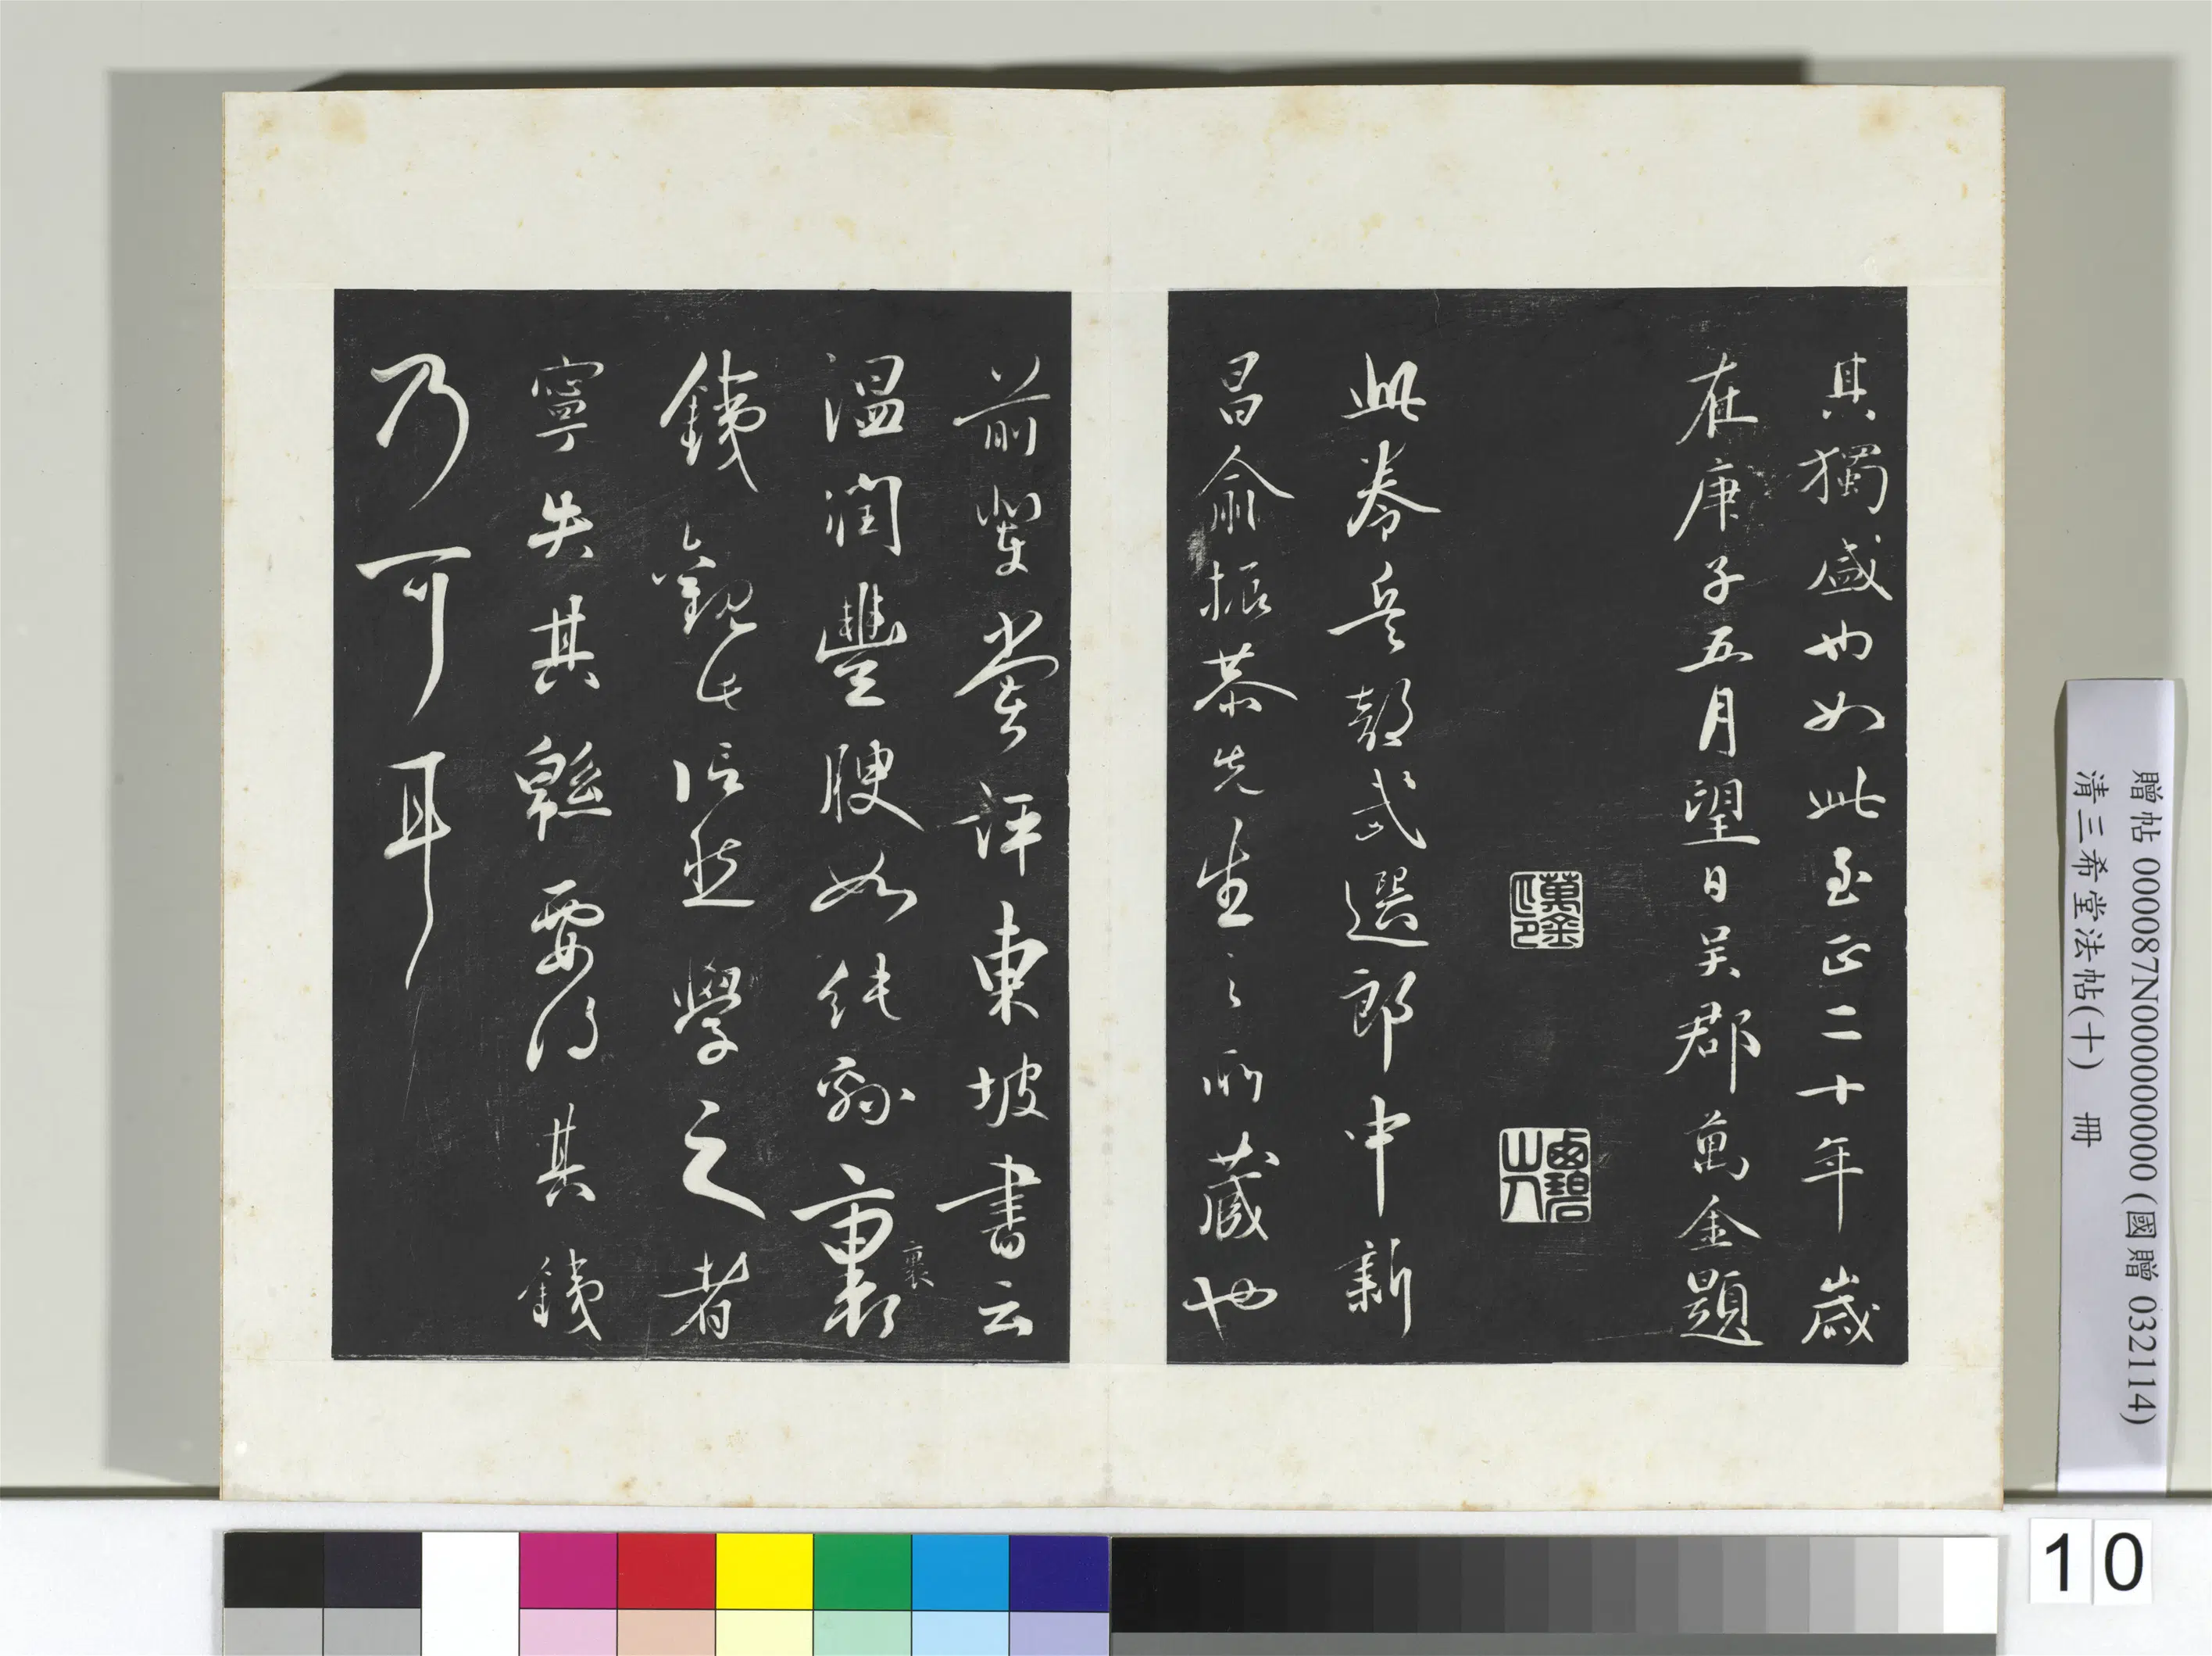 其獨盛也如此至正二十年歲
在庚子五月望日吴郡萬金題
此卷兵部武選郎中新
昌俞振恭先生之所藏也
前輩嘗評東坡書云
温潤豐腴如純緜裏
裹
銕觀此信然學之者
寧失其緜要得其銕
乃可耳
贈帖 000087N000000000 (國贈 032114)
清三希堂法帖(十) 冊
10